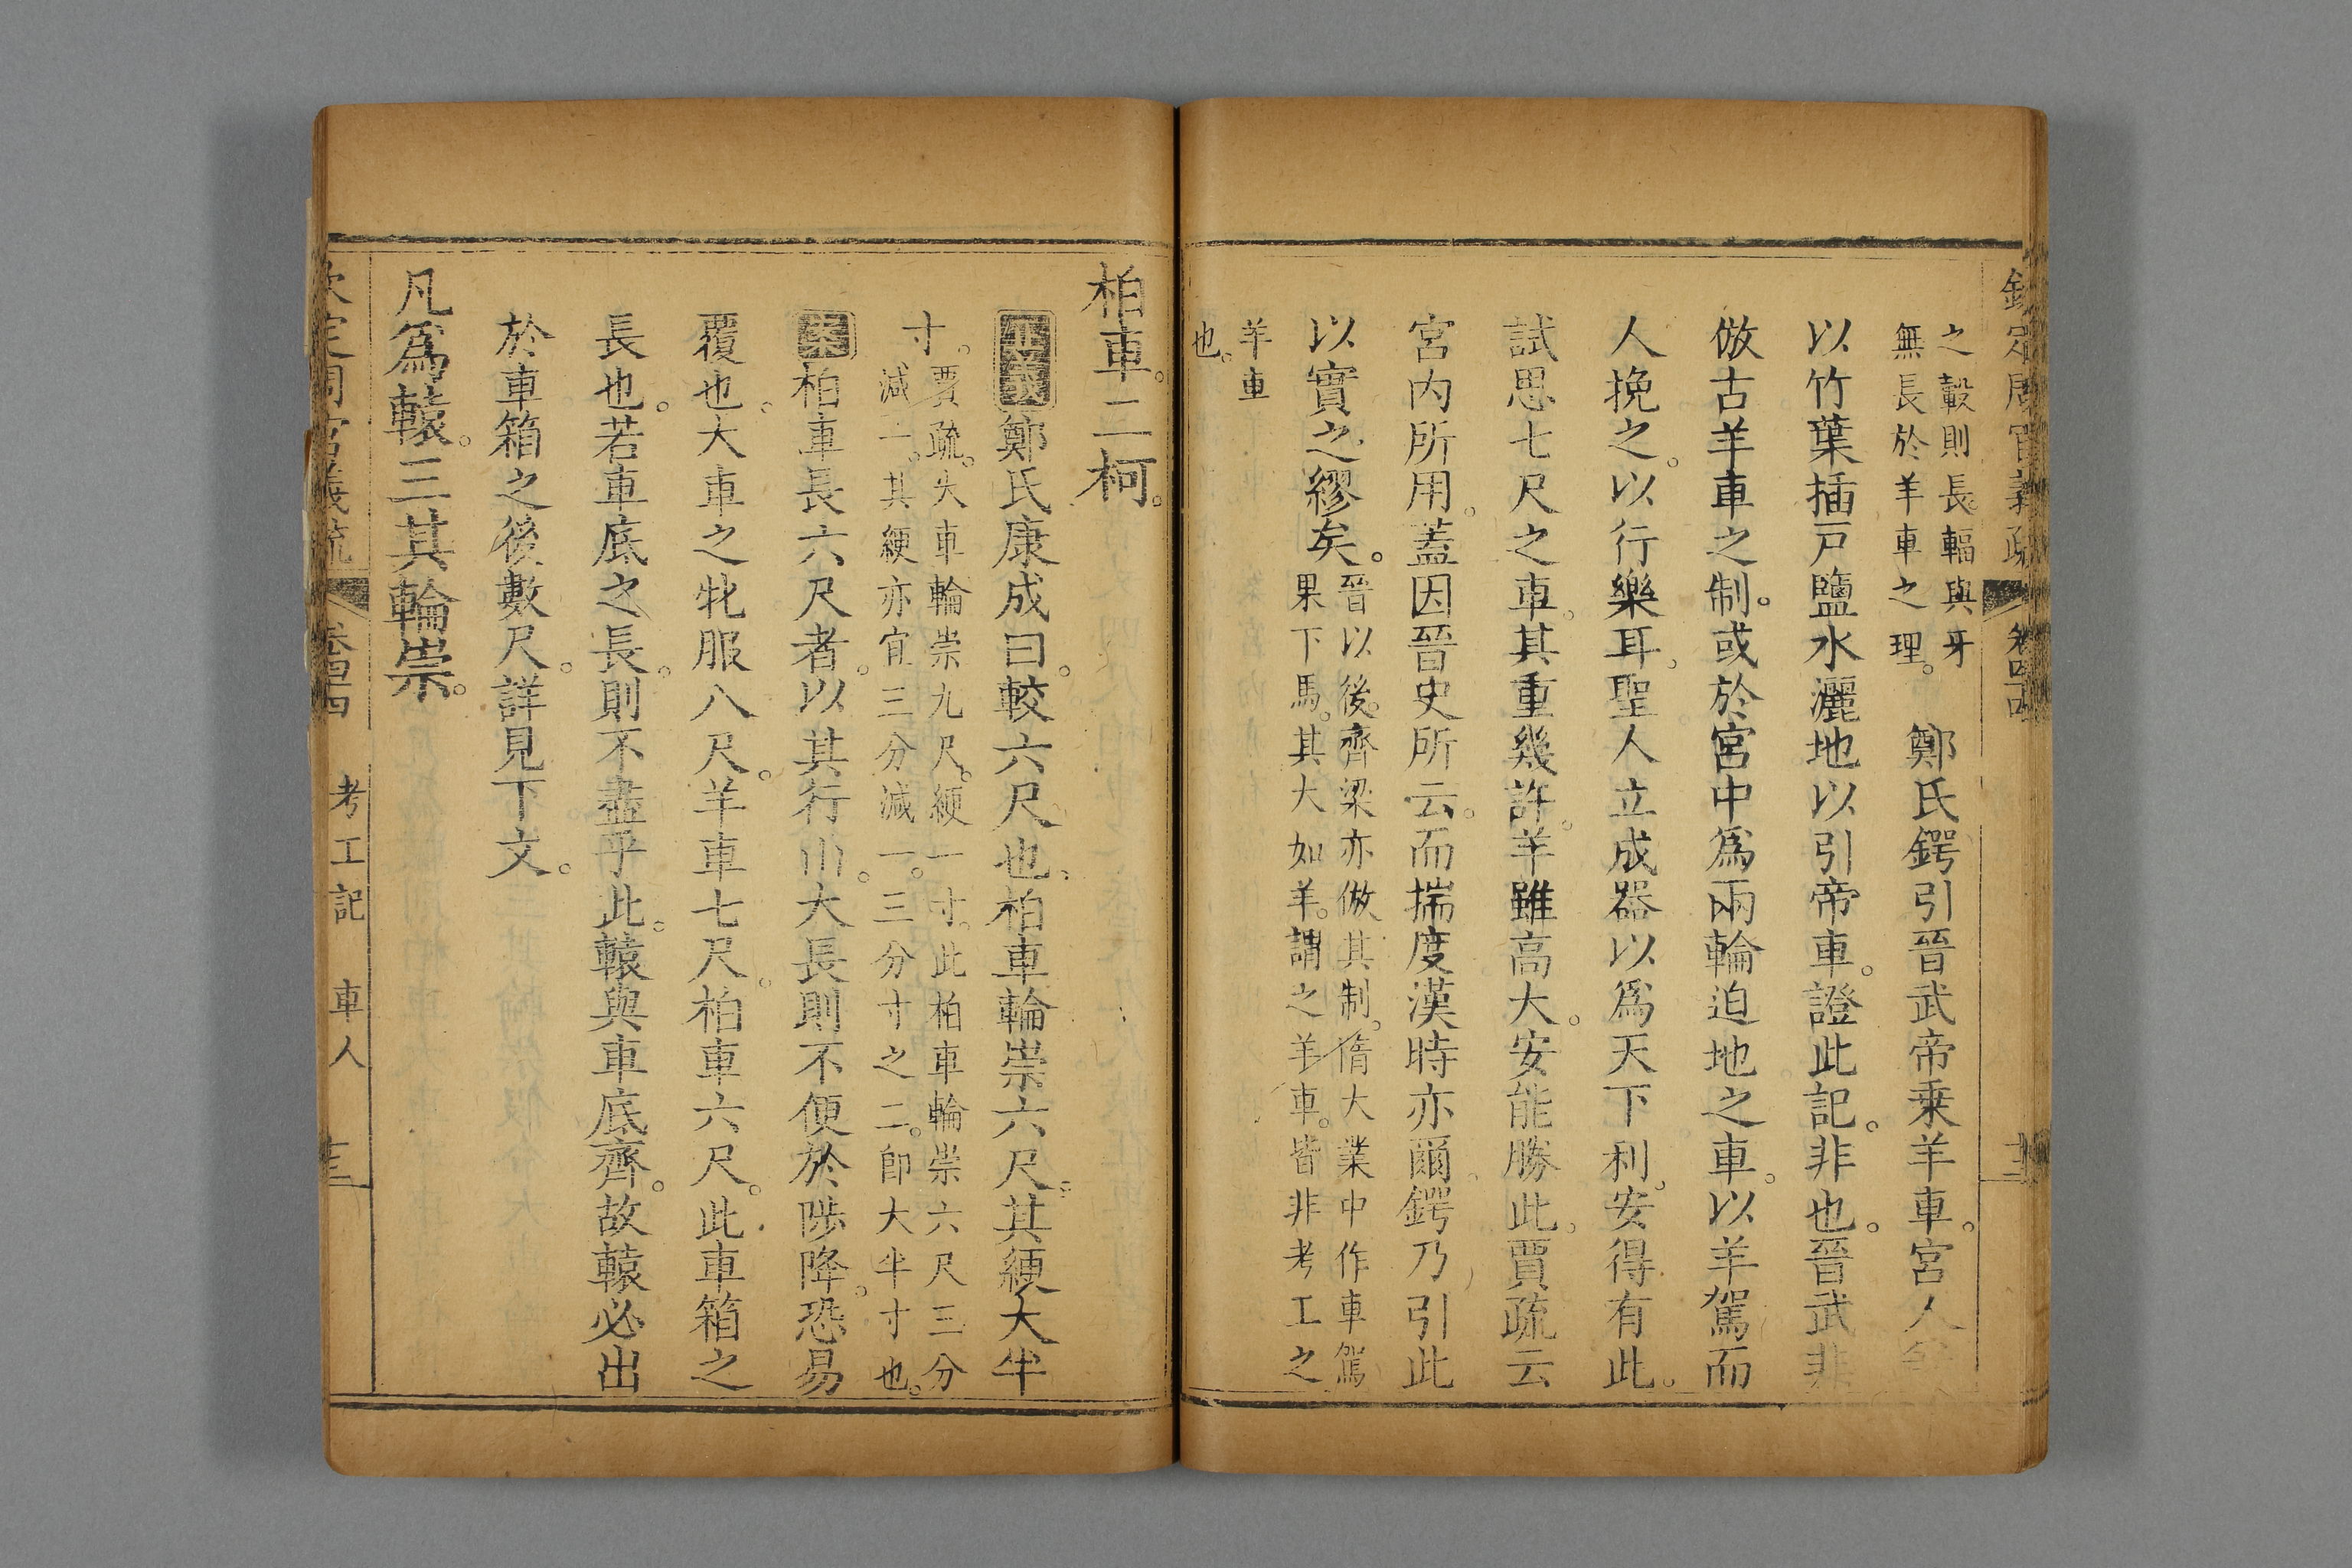 之轂則長輻與牙
無長於羊車之理。
鄭氏鍔引晉武帝乗羊車。宮人
以竹葉插戸鹽水灑地以引帝車。證此記。非也。晉武非
倣古羊車之制。或於宮中爲兩輪迫地之車。以羊駕而
人挽之。以行樂耳。聖人立成器以爲天下利。安得有此。
試思七尺之車。其重幾許。羊雖高大。安能勝此。賈疏云
宮内所用。蓋因晉史所云。而揣度漢時亦爾。鍔乃引此
以實之繆矣。
晉以後。齊梁亦倣其制。隋大業中作車駕
果下馬。其大如羊。謂之羊車。皆非考工之
羊車
也。
柏車二柯。
正義鄭氏康成曰。較六尺也。柏車輪崇六尺。其綆大半
寸。
賈疏。大車輪崇九尺。綆一寸。此柏車輪崇六尺三分
減一。其綆亦宜三分減一。三分寸之二。卽大半寸也。
案柏車長六尺者。以其行山。大長則不便於陟降。恐易
覆也。大車之牝服八尺。羊車七尺。柏車六尺。此車箱之
長也。若車底之長。則不盡乎此。轅與車底齊。故轅必出
於車箱之後數尺。詳見下文。
凡爲轅。三其輪崇。
欽定周官義疏
卷四四
考工記 車人